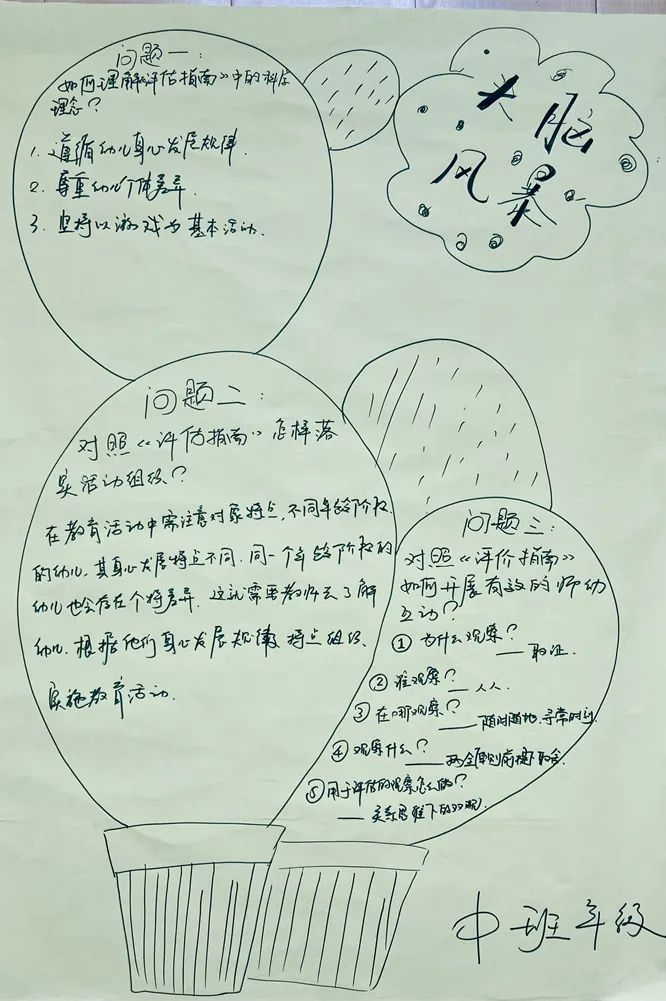 头脑
风暴
问题一:
如何理解《评估指南》中的科学
理念?
1. 遵循幼儿身心发展规律.
2. 尊重幼儿个体差异.
3. 坚持以游戏为基本活动.
问题二:
对照《评估指南》怎样落
实活动组织?
在教育活动中需注意对象特点,不同年龄阶段
的幼儿,其身心发展特点不同.同一个年龄阶段的
幼儿也会存在个特差异.这就需要教师去了解
幼儿.根据他们身心发展规律、特点组织、
实施教育活动.
问题三:
对照《评价指南》
如何开展有效的师幼
互动?
① 为什么观察?
——取证.
② 谁观察?
—人人.
③ 在哪观察?
——随时随地、寻常时刻
④ 观察什么?
——两全原则前提下取舍.
⑤用于评估的观察怎么做?
——关系思维下的双观.
中班年级